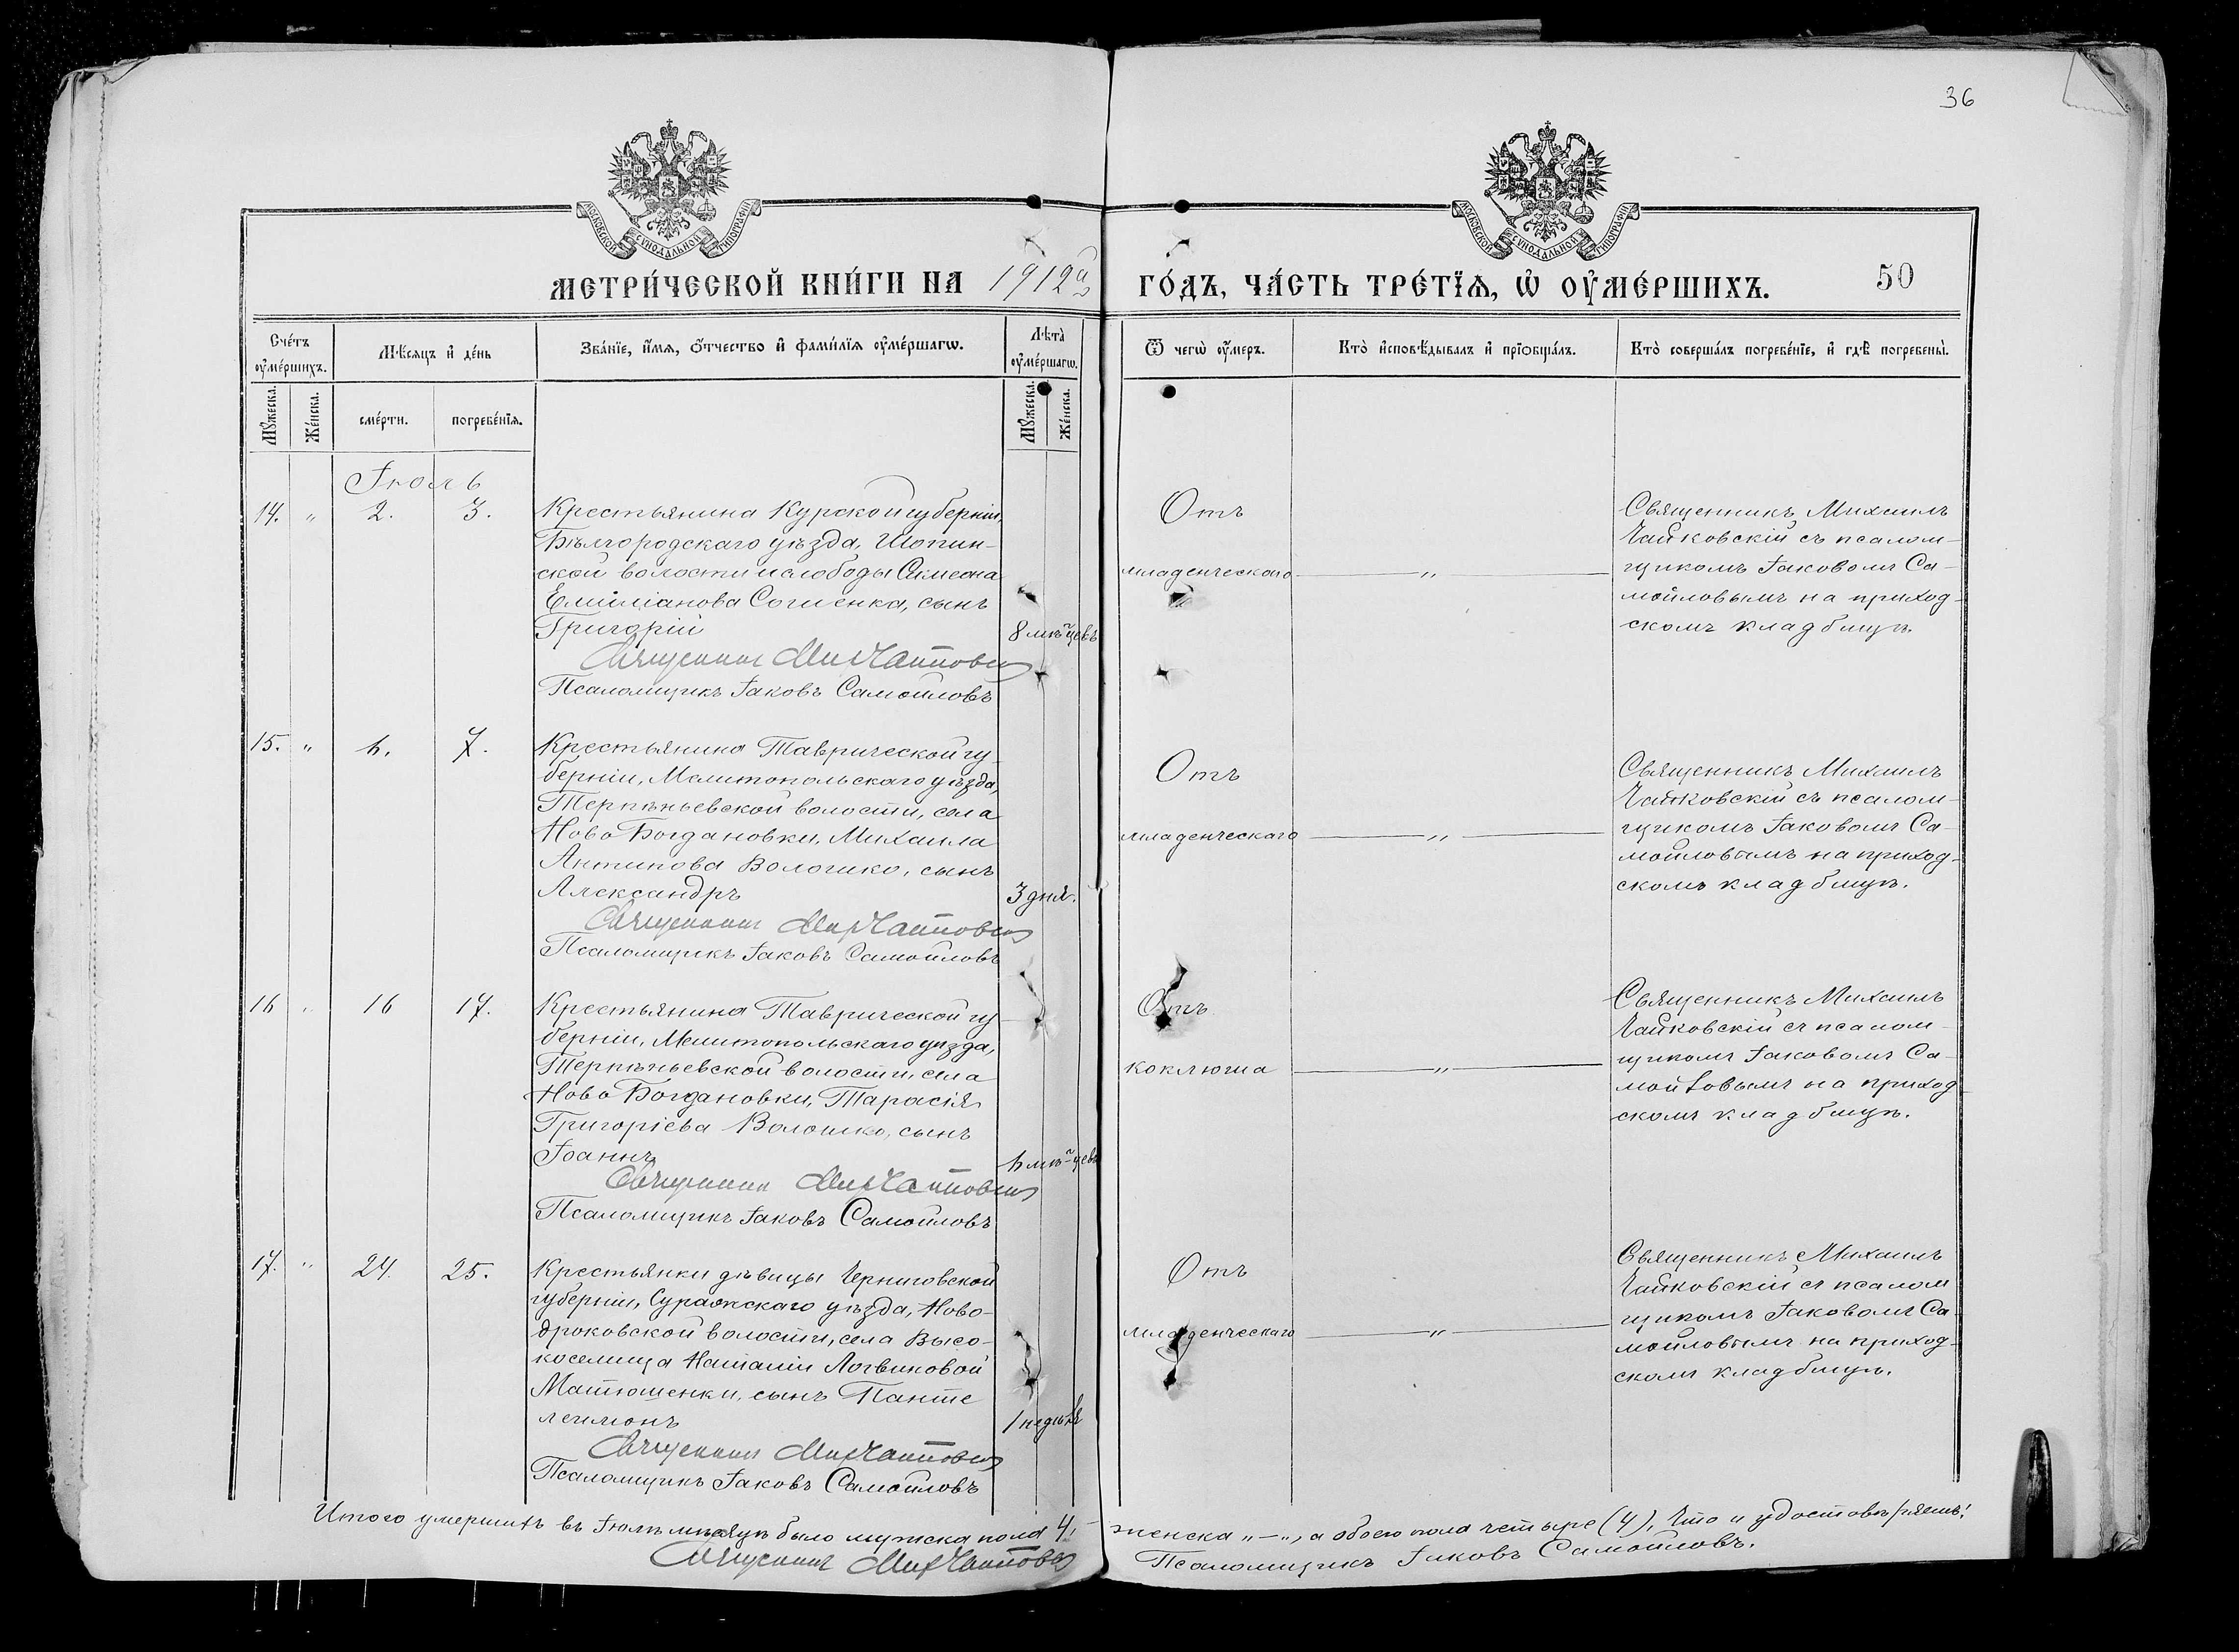 36
МОСКОВСКОЙ СУНОДАЛЬНОЙ ТИПОГРАФІИ
МОСКОВСКОЙ СУНОДАЛЬНОЙ ТИПОГРАФІИ
МЕТРИ́ЧЕСКОЙ КНИ́ГИ НА 1912й
ГО́ДЪ, ЧА́СТЬ ТРЕ́ТЇѦ, Ѡ҆ ОУ҆МЕ́РШИХЪ. 50
Сче́тъ оу҆ме́ршихъ.
Мѣ́сяцъ и҆ де́нь
Зва́нїе, и҆́мя, ѻ҆́тчество и҆ фами́лїя оу҆ме́ршагѡ.
Лѣта̀ оу҆ме́ршагѡ.
Мꙋ́жеска.
Же́нска.
сме́рти.
погребе́нїя.
Мꙋ́жеска.
Же́нска.
Ѿ чегѡ̀ оу҆́меръ.
Кто̀ и҆сповѣ́дывалъ и҆ прїѡбща́лъ.
Кто̀ соверша́лъ погребе́нїе, и҆ гдѣ̀ погребены̀.
Іюль
14. " 2. 3.
Крестьянина Курской губерніи,
Бѣлгородскаго уѣзда, Шопин-
ской волости и слободы Симеона
Емиліанова Согиенка, сынъ
Григорій
8 мѣ-цевъ
Священникъ Мих Чайковскій
Псаломщикъ Іаковъ Самойловъ
Отъ
младенческаго
"
Священникъ Михаилъ
Чайковскій съ псалом-
щикомъ Іаковомъ Са-
мойловымъ на приход-
скомъ кладбищѣ.
15. " 6. 7.
Крестьянина Таврической гу-
берніи, Мелитопольскаго уѣзда,
Терпѣньевской волости, села
Ново Богдановки, Михаила
Антипова Волошко, сынъ
Александръ
3 дня.
Священникъ Мих Чайковскій
Псаломщикъ Іаковъ Самойловъ
Отъ
младенческаго
"
Священникъ Михаилъ
Чайковскій съ псалом-
щикомъ Іаковомъ Са-
мойловымъ на приход-
скомъ кладбищѣ.
16 " 16 17.
Крестьянина Таврической гу-
берніи, Мелитопольскаго уѣзда,
Терпѣньевской волости, села
Ново Богдановки, Тарасія
Григоріева Волошко, сынъ
Іоаннъ
6 мѣ-цевъ
Священникъ Мих Чайковскій
Псаломщикъ Іаковъ Самойловъ
Отъ
коклюша
"
Священникъ Михаилъ
Чайковскій съ псалом-
щикомъ Іаковомъ Са-
мойловымъ на приход-
скомъ кладбищѣ.
17. " 24. 25.
Крестьянки дѣвицы Черниговской
губерніи, Суражскаго уѣзда, Ново-
дроковской волости, села Высо-
коселища Наталіи Логвиновой
Матюшенки, сынъ Панте
леимонъ
1 недѣля
Священникъ Мих Чайковскій
Псаломщикъ Іаковъ Самойловъ
Отъ
младенческаго
"
Священникъ Михаилъ
Чайковскій съ псалом
щикомъ Іаковомъ Са-
мойловымъ на приход-
скомъ кладбищѣ.
Итого умершихъ въ Іюлѣ мѣсяцѣ было мужска пола 4, женска "—", а обоего пола четыре (4), Что и удостовѣряемъ:
Священникъ Мих Чайковскій Псаломщикъ Іаковъ Самойловъ.